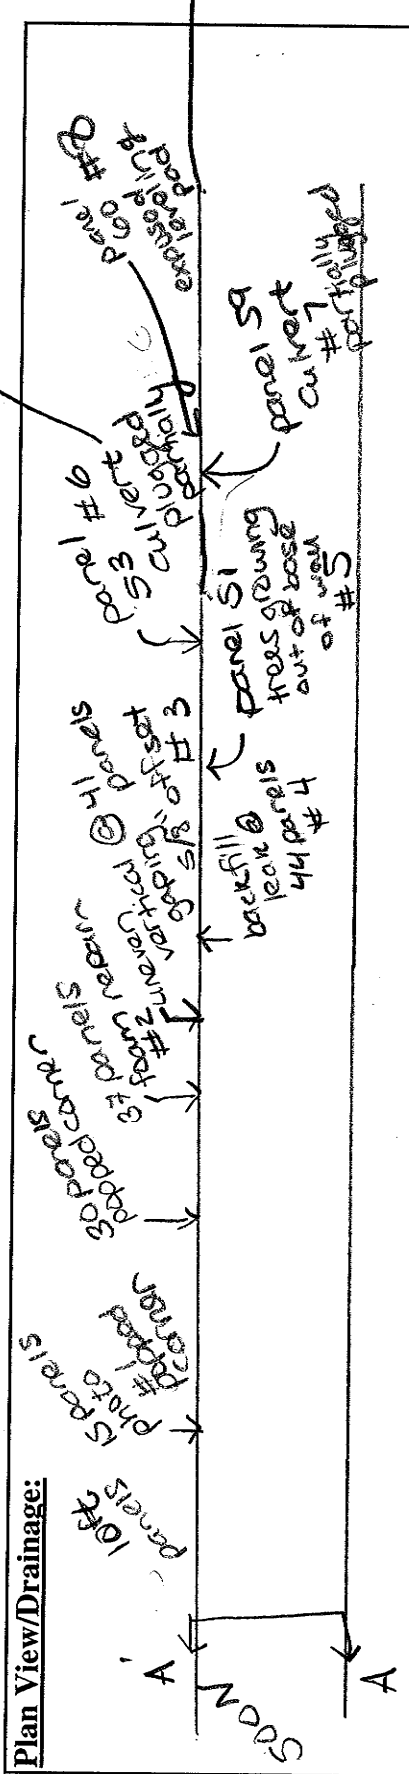 Plan View/Drainage:
A'
A
500 N
10ft
panels
15 panels
photo
#1
popped
corner
30 panels
popped corner
37 panels
foam repair
#2
uneven
vertical @ 41 panels
gaping,
5/8" offset
#3
backfill
leak @
44 panels
#4
panel 51
trees growing
out of base
of wall
#5
panel #6
53
culvert
plugged
partially
panel 59
culvert
#7
partially
plugged
panel
60 #8
exposed
leveling
pad